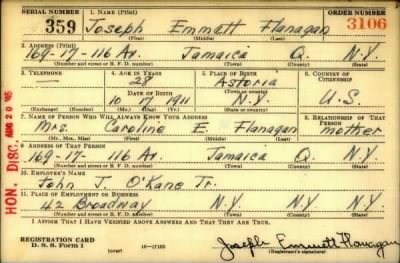 SERIAL NUMBER 1. NAME (Print) ORDER NUMBER
359 Joseph Emmett Flanagan 3106
(First) (Middle) (Last)
2. ADDRESS (Print)
169-17-116 Av. Jamaica Q. N.Y.
(Number and street or R. F. D. number) (Town) (County) (State)
3. TELEPHONE 4. AGE IN YEARS 5. PLACE OF BIRTH 6. COUNTRY OF CITIZENSHIP
— 28 Astoria
DATE OF BIRTH (Town or county)
10 17 1911 N.Y. U.S.
(Exchange) (Number) (Mo.) (Day) (Yr.) (State or country)
7. NAME OF PERSON WHO WILL ALWAYS KNOW YOUR ADDRESS 8. RELATIONSHIP OF THAT PERSON
Mrs. Caroline E. Flanagan mother
(Mr., Mrs., Miss) (First) (Middle) (Last)
9. ADDRESS OF THAT PERSON
169-17-116 Av. Jamaica Q. N.Y.
(Number and street or R. F. D. number) (Town) (County) (State)
10. EMPLOYER'S NAME
John J. O'Kane Jr.
11. PLACE OF EMPLOYMENT OR BUSINESS
42 Broadway N.Y. N.Y. N.Y.
(Number and street or R. F. D. number) (Town) (County) (State)
I AFFIRM THAT I HAVE VERIFIED ABOVE ANSWERS AND THAT THEY ARE TRUE.
REGISTRATION CARD
D. S. S. Form 1 (over) 16-17105 Joseph Emmett Flanagan
(Registrant's signature)
HON. DISC. AUG 20 '45